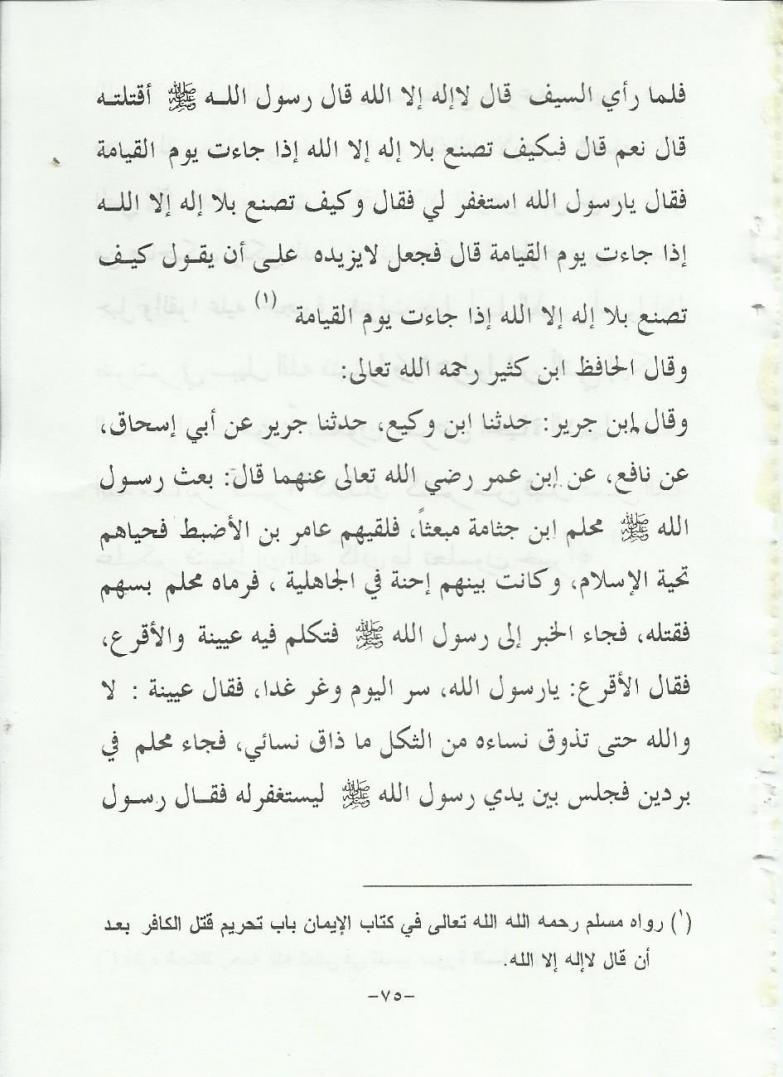 فلما رأي السيف قال لاإله إلا الله قال رسول اللـه ﷺ أقتلتـه
قال نعم قال فكيف تصنع بلا إله إلا الله إذا جاءت يوم القيامة
فقال يارسول الله استغفر لي فقال وكيف تصنع بلا إله إلا اللـه
إذا جاءت يوم القيامة قال فجعل لايزيده على أن يقول كيف
تصنع بلا إله إلا الله إذا جاءت يوم القيامة (١)
وقال الحافظ ابن كثير رحمه الله تعالى:
وقال ابن جرير: حدثنا ابن وكيع، حدثنا جرير عن أبي إسحاق،
عن نافع، عن إبن عمر رضي الله تعالى عنهما قال: بعث رسول
الله ﷺ محلم ابن جثامة مبعثاً، فلقيهم عامر بن الأضبط فحياهم
تحية الإسلام، وكانت بينهم إحنة في الجاهلية ، فرماه محلم بسهم
فقتله، فجاء الخبر إلى رسول الله ﷺ فتكلم فيه عيينة والأقرع،
فقال الأقرع: يارسول الله، سر اليوم وغر غدا، فقال عيينة : لا
والله حتى تذوق نساءه من الثكل ما ذاق نسائي، فجاء محلم في
بردين فجلس بين يدي رسول الله ﷺ ليستغفرله فقـال رسـول
(١) رواه مسلم رحمه الله الله تعالى في كتاب الإيمان باب تحريم قتل الكافر بعد
أن قال لاإله إلا الله.
-٧٥-